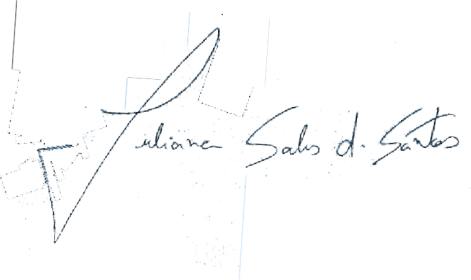 Juliana Sales d. Santos